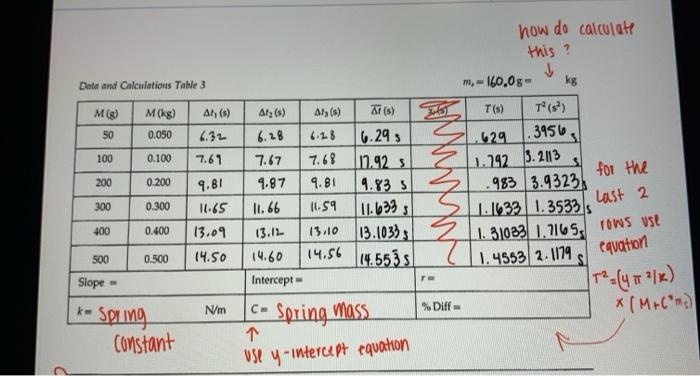 how do calculate
this ?
Data and Calculations Table 3 mₛ = 160.0g = kg
M (g) M (kg) Δt₁ (s) Δt₂ (s) Δt₃ (s) Δt (s) T (s) T² (s²)
50 0.050 6.32 6.28 6.28 6.29 s .629 .3956 s
100 0.100 7.69 7.67 7.68 17.92 s 1.792 3.2113 s
200 0.200 9.81 9.87 9.81 9.83 s .983 3.9323 s
300 0.300 11.65 11.66 11.59 11.633 s 1.1633 1.3533 s
400 0.400 13.09 13.12 13.10 13.1033 s 1.31033 1.7165 s
500 0.500 14.50 14.60 14.56 14.553 s 1.4553 2.1179 s
for the
last 2
rows use
equation
T² = (4π²/k)
x (M+C*mₛ)
Slope = Intercept = r =
k = Spring N/m C = Spring mass % Diff =
constant
use y-intercept equation